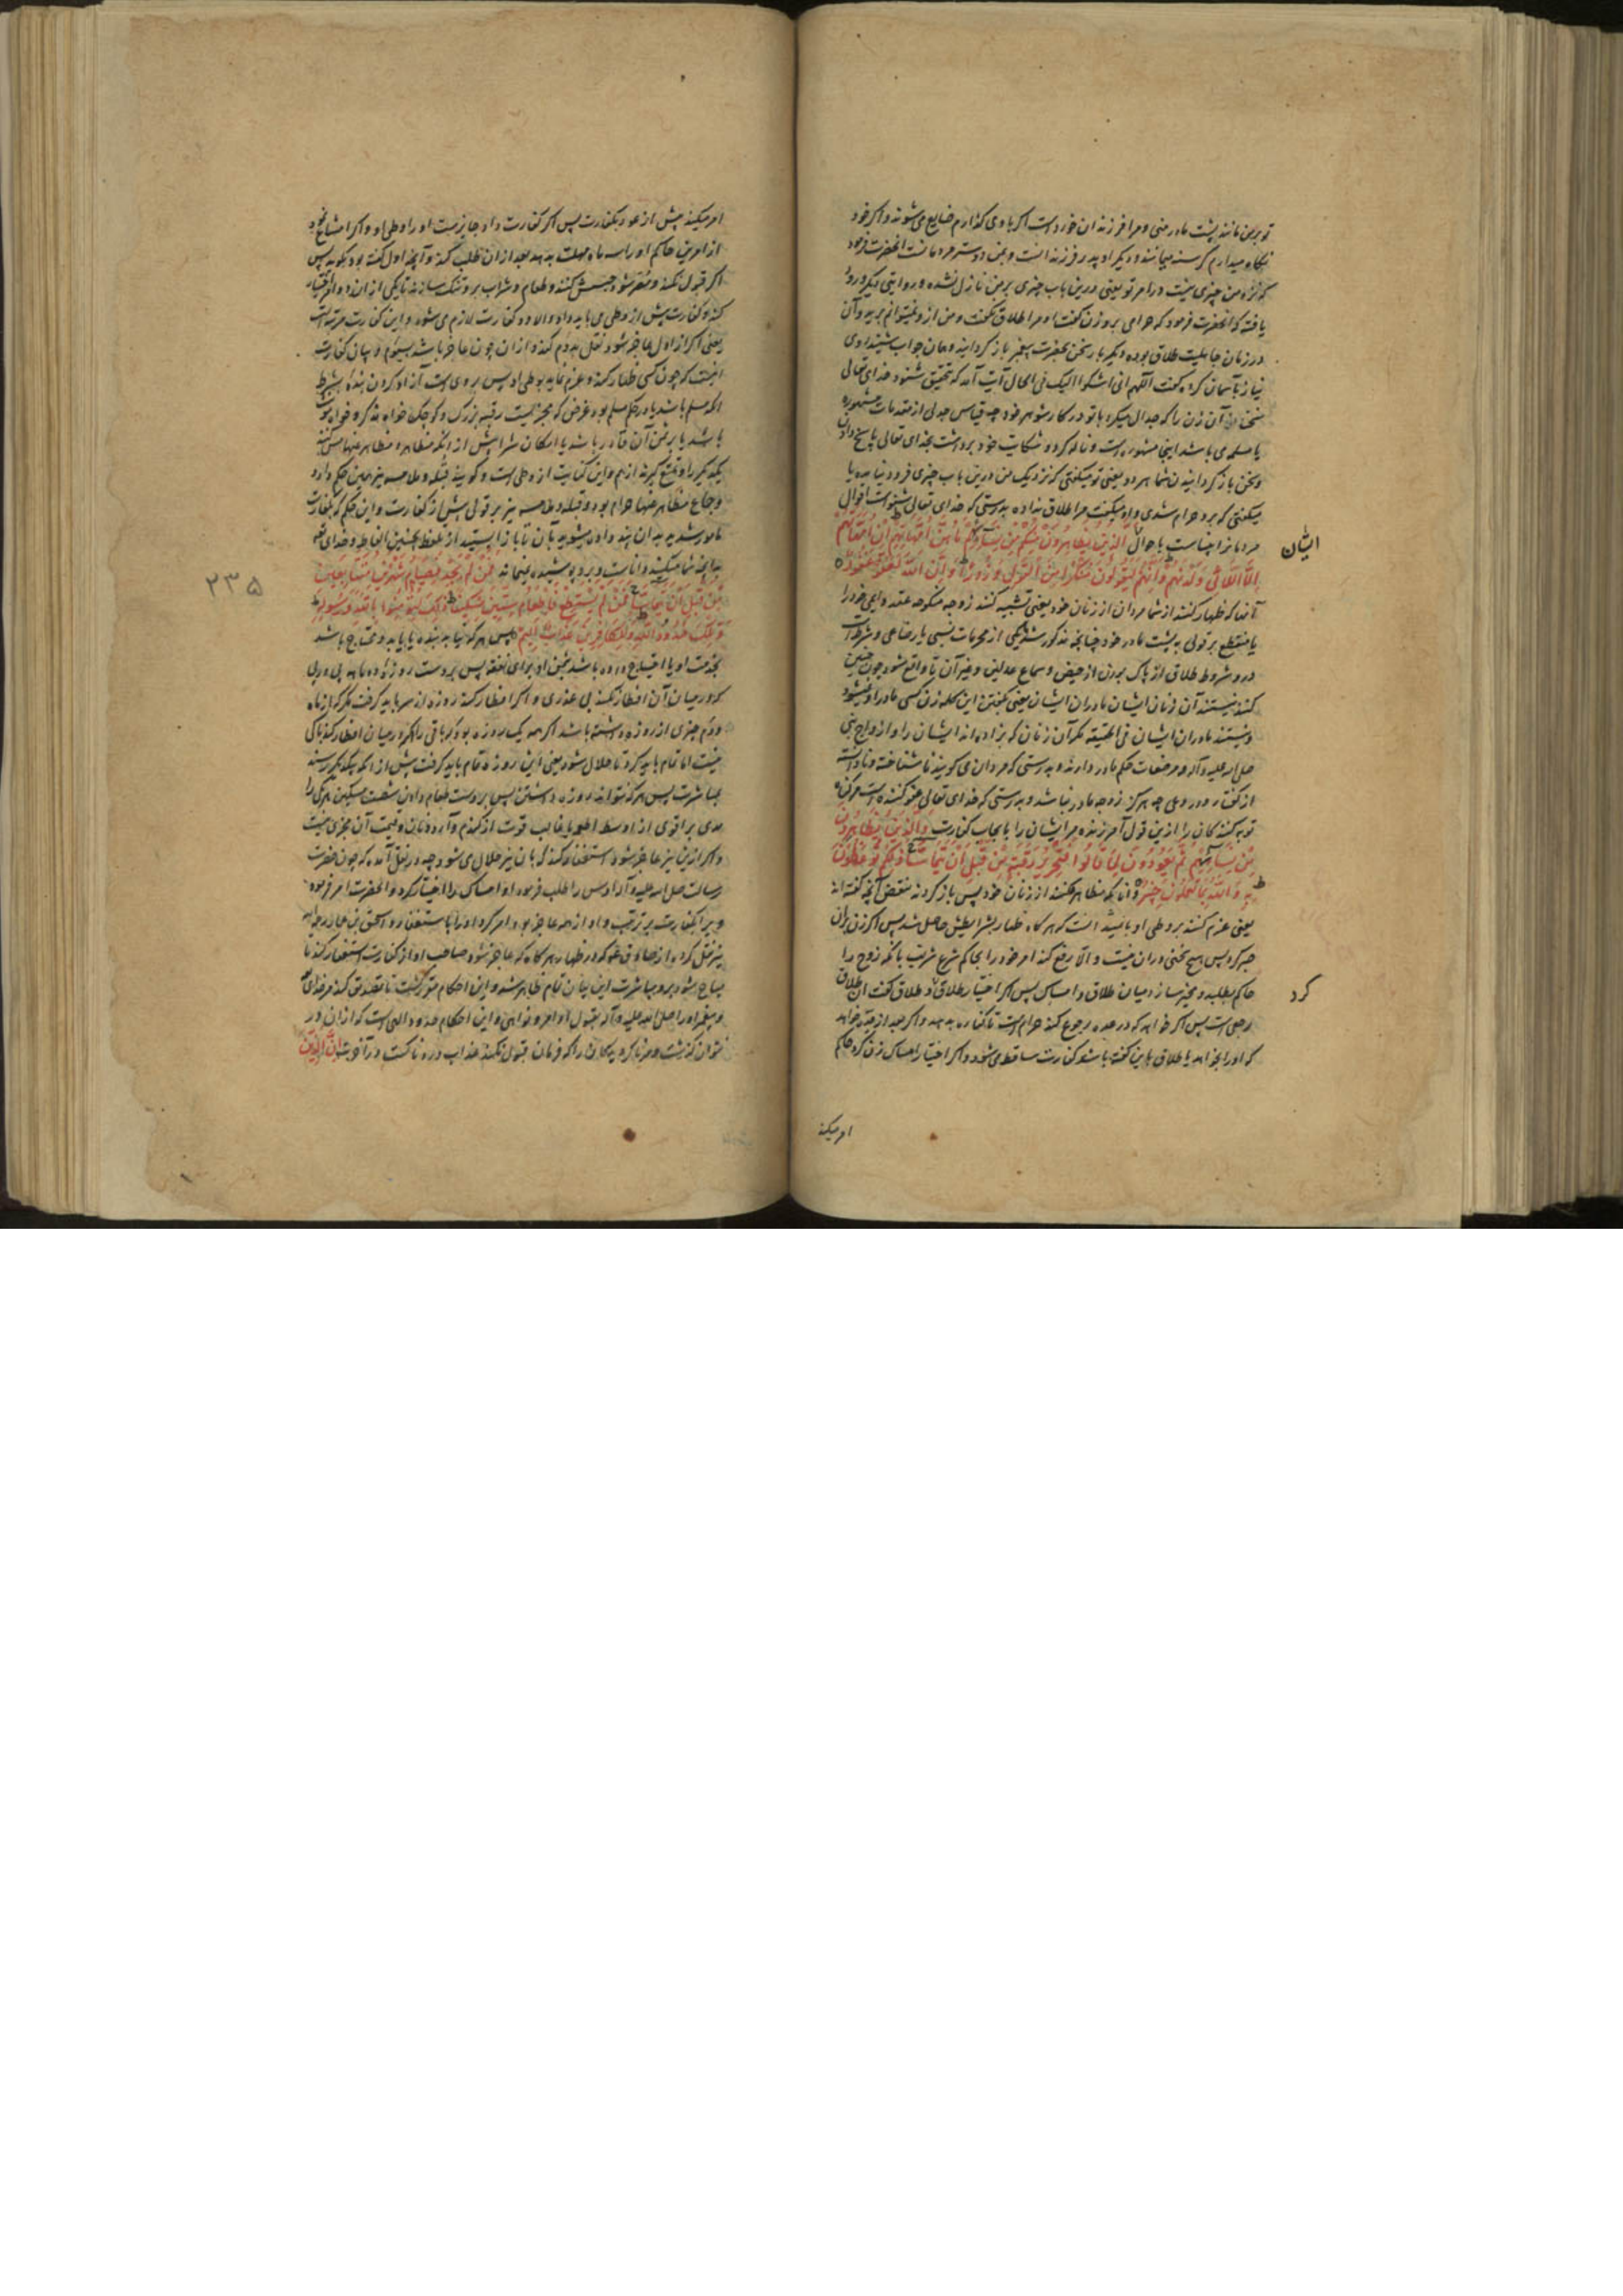 تو بر من مانند پشت مادر منی و مرا فرزندان خورد است اگر باوی گذارم ضایع می‌شوند و اگر خود
نگاه میدارم گرسنه میمانند و دیگر او پدر فرزندانست و بمن دوستر مردمانست انحضرت فرمود
که نزد من چیزی نیست در امر تو یعنی درین باب چیزی بر من نازل نشده و روایتی دیگر ورود
یافته که انحضرت فرمود که حرامی برو زن گفت او مرا طلاق نگفت و من از و نمیتوانم برید و آن
در زمان جاهلیت طلاق بوده دیگر بار سخن بحضرت پیغمبر باز گردانید و همان جواب شنید او روی
نیاز بآسمان کرده گفت اللهم انی اشکوا الیک فی الحال آیت آمد که تحقیق شنود خدای تعالی
سخن آن زن را که جدال میکرد با تو در کار شوهر خود چه قیاس جدلی از مقدمات مشهوره
یا مسلمه می باشد اینجا مشهوره است و ناله کرد و شکایت خود برداشت بخدای تعالی پاسخ دادن
و سخن باز گردانیدن شما هر دو یعنی تو میگفتی که نزدیک من درین باب چیزی فرود نیامده یا
میگفتی که برو حرام شدی و او میگفت مرا طلاق نداده بدرستی که خدای تعالی شنواست اقوال
مردمانرا بیناست باحوال الَّذِينَ يُظَاهِرُونَ مِنْكُمْ مِنْ نِسَائِهِمْ مَا هُنَّ أُمَّهَاتِهِمْ إِنْ أُمَّهَاتُهُمْ
ایشان
إِلَّا اللَّائِي وَلَدْنَهُمْ وَإِنَّهُمْ لَيَقُولُونَ مُنْكَرًا مِنَ الْقَوْلِ وَزُورًا وَإِنَّ اللَّهَ لَعَفُوٌّ غَفُورٌ
آنها که ظهار کنند از شما مردان از زنان خود یعنی تشبیه کنند زوجه منکوحه عقد دایمی خود را
یا منقطع بر قولی به پشت مادر خود چنانچه مذکور شد یکی از محرمات نسبی یا رضاعی و شرطست
درو شروط طلاق از پاک بودن از حیض و سماع عدلین و غیر آن تا واقع شود چون چنین
کنند نیستند آن زنان ایشان مادران ایشان یعنی بگفتن این کلمه زن کسی مادر او نمیشود
و نیستند مادران ایشان فی الحقیقه مگر آن زنان که بزاده‌اند ایشان را و ازواج نبی
صلی الله علیه و آله و مرضعات حکم مادر دارند و بدرستی که مردان می گویند ناشناخته و نادانسته
از گفتار و دروغی چه هرگز زوجه مادر نباشد و بدرستی که خدای تعالی عفو کننده است مر گناه
توبه کنندگان را ازین قول آمرزنده مر ایشان را بایجاب کفارت وَالَّذِينَ يُظَاهِرُونَ
مِنْ نِسَائِهِمْ ثُمَّ يَعُودُونَ لِمَا قَالُوا فَتَحْرِيرُ رَقَبَةٍ مِنْ قَبْلِ أَنْ يَتَمَاسَّا ذَلِكُمْ تُوعَظُونَ
بِهِ وَاللَّهُ بِمَا تَعْمَلُونَ خَبِيرٌ و آنانکه مظاهره کنند از زنان خود پس باز گردند بنقض آنچه گفته‌اند
یعنی عزم کنند بر وطی او بانید آنست که هرگاه ظهار بشرایطش حاصل شد پس اگر زن بران
صبر کرد پس هیچ سخنی دران نیست و الا رفع کند امر خود را بحاکم شرع شریف بآنکه زوج را
حاکم بطلبد و مخیر سازد میان طلاق و امساک پس اگر اختیار طلاق و طلاق گفت آن طلاق
کرد
رجعی است پس اگر خواهد که در عده رجوع کند حرام است تا کفاره بدهد و اگر بعد از عده خواهد
که او را بخواهد یا طلاق باین گفته باشد کفارت ساقط می شود و اگر اختیار امساک زن کرد حاکم
امر میکند
امر میکند پیش از عود بکفارت پس اگر کفارت داد جایز است او را وطی او و اگر امتناع نمود
از امرین حاکم او را سه ماه مهلت بدهد بعد ازان طلب کند و آنچه اول گفته بود بگوید پس
اگر قبول نکند و مصر شود حبسش کنند و طعام و شراب برو تنگ سازند تا یکی از ان دو امر اختیار
کند و کفارت پیش از وطی می باید داد و الا دو کفارت لازم می شود و این کفارت مرتبه است
یعنی اگر از اول عاجز شود نقل به دوم کند و ازان چون عاجز باشد بسیوم و بیان کفارت
اینست که چون کسی ظهار کند و عزم نماید بوطی او پس بروی است آزاد کردن بنده بشرط
آنکه مسلم باشد یا در حکم مسلم بود غرض که مجزیست رقبه بزرگ و کوچک خواه مذکر و خواه مونث
باشد یا بر ثمن آن قادر باشد با امکان شرا پیش از آنکه مظاهره و مظاهر عنها مس کنند
یکدیگر را و تمتع گیرند از هم و این کنایت از وطی است و گویند قبله و ملامسه نیز همین حکم دارد
و جماع مظاهر عنها حرام بود و قبله و ملامسه نیز بر قولی پیش از کفارت و این حکم که بکفارت
مامور شدید بدان پند داده میشوید بآن تا باز ایستید از تلفظ بچنین الفاظ و خدای تعالی
بدانچه شما میکنید داناست و برو پوشیده نمیماند فَمَنْ لَمْ يَجِدْ فَصِيَامُ شَهْرَيْنِ مُتَتَابِعَيْنِ
۲۳۵
مِنْ قَبْلِ أَنْ يَتَمَاسَّا فَمَنْ لَمْ يَسْتَطِعْ فَإِطْعَامُ سِتِّينَ مِسْكِينًا ذَلِكَ لِتُؤْمِنُوا بِاللَّهِ وَرَسُولِهِ
وَتِلْكَ حُدُودُ اللَّهِ وَلِلْكَافِرِينَ عَذَابٌ أَلِيمٌ پس هر که نیابد بنده یا بیابد و محتاج باشد
بخدمت او یا احتیاج داشته باشد بثمن او برای نفقه پس بروست روزه دو ماهه پی در پی
که در میان آن افطار نکند بی عذری و اگر افطار کند روزه از سر باید گرفت مگر که از ماه
دوم چیزی از روزه داشته باشد اگر همه یک روزه بود که باقی را اگر در میان افطار کند باکی
نیست اما تمام باید کرد تا حلال شود یعنی این روزه تمام باید گرفت پیش از آنکه بیکدیگر رسند
بمباشرت پس هر که نتواند روزه داشتن پس بروست طعام دادن شصت مسکین هر یکی را
مدی بر اقوی از اوسط اطعمه یا غالب قوت از گندم و آرد و نان و قیمت آن مجزی نیست
و اگر ازین نیز عاجز شود استغفار کند که بآن نیز حلال می شود چه در نقل آمده که چون حضرت
رسالت صلی الله علیه و آله اوس را طلب فرمود او امساک را اختیار کرد و انحضرت امر فرموده
ویرا بکفارت بر ترتیب و او از همه عاجز بود امر کرد او را باستغفار و اسحق بن عمار
نیز نقل کرده از صادق ع که در ظهار هرگاه که عاجز شود صاحب او از کفارت استغفار کند تا
مباح شود برو مباشرت این بیان تمام ظاهر شد و این احکام متوکد گشت تا تصدیق کنند مر خدای
و پیغمبر او را صلی الله علیه و آله بقبول اوامر و نواهی و این احکام حدود الهی است که ازان در
نتوان گذشت و مر ناگرویدگان را که فرمان قبول نکنند عذاب دردناکست در آخرت إِنَّ الَّذِينَ